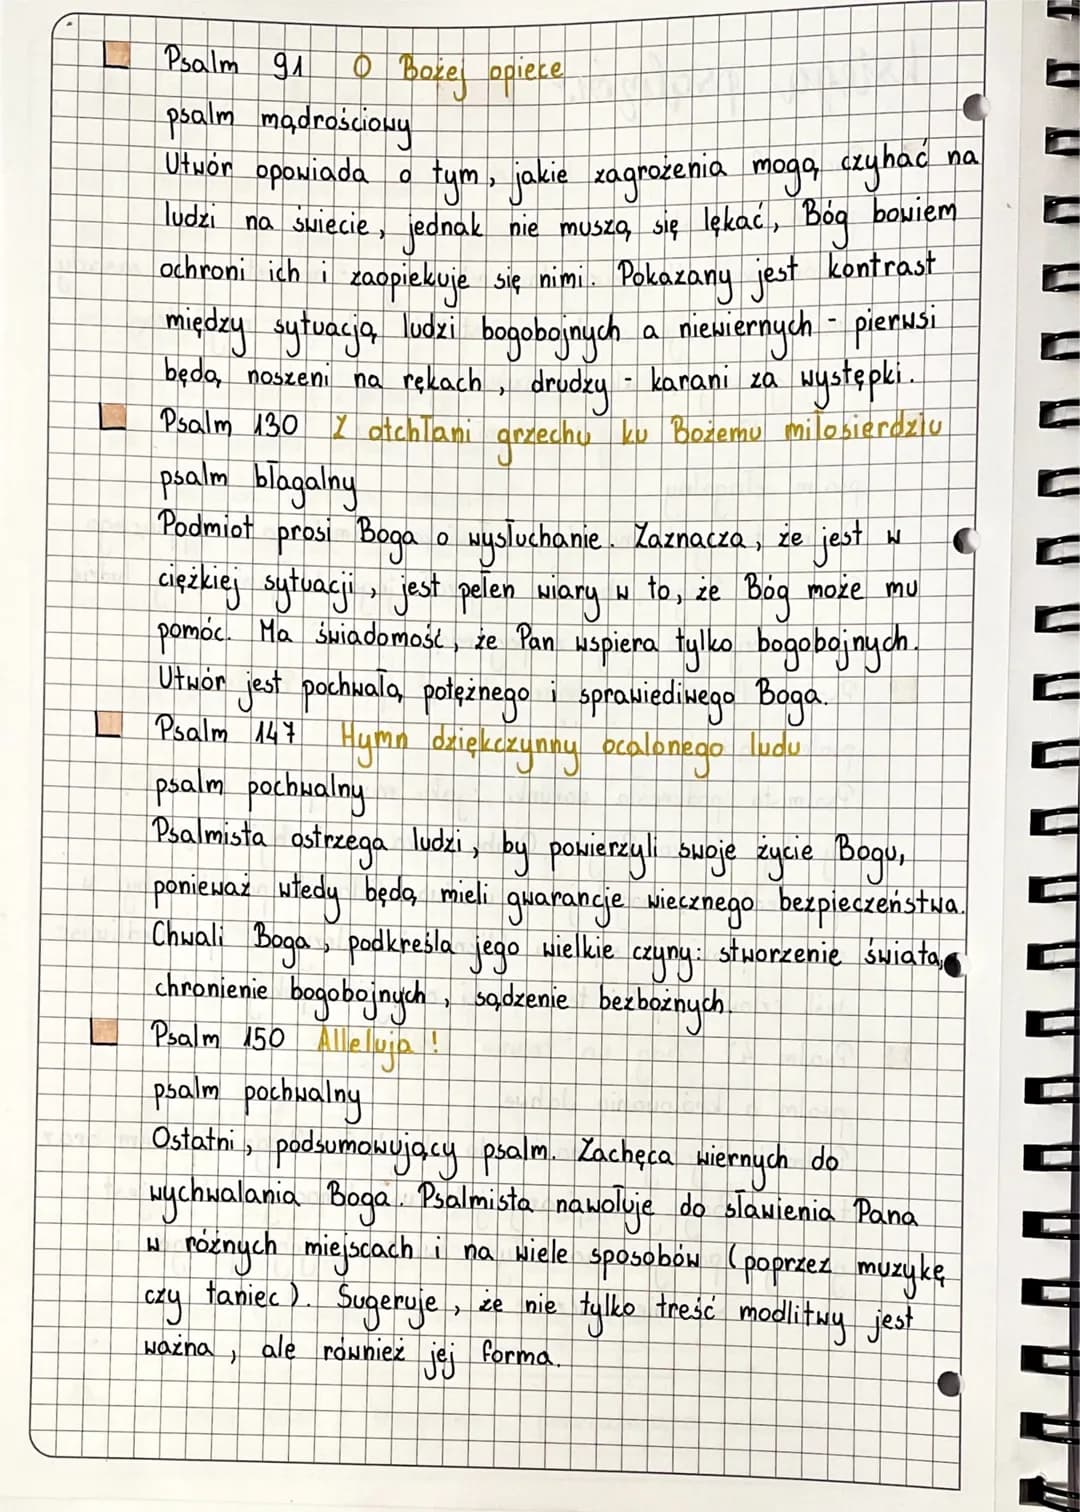 Psalm 91 O Bożej opiece
psalm mądrościowy
Utwór opowiada o tym, jakie zagrożenia mogą czyhać na
ludzi na świecie, jednak nie muszą się lękać, Bóg bowiem
ochroni ich i zaopiekuje się nimi. Pokazany jest kontrast
między sytuacją ludzi bogobojnych a niewiernych - pierwsi
będą noszeni na rękach, drudzy - karani za występki.
Psalm 130 Z otchłani grzechu ku Bożemu miłosierdziu
psalm błagalny
Podmiot prosi Boga o wysłuchanie. Zaznacza, że jest w
ciężkiej sytuacji, jest pełen wiary w to, że Bóg może mu
pomóc. Ma świadomość, że Pan wspiera tylko bogobojnych.
Utwór jest pochwałą potężnego i sprawiediwego Boga.
Psalm 147 Hymn dziękczynny ocalonego ludu
psalm pochwalny
Psalmista ostrzega ludzi, by powierzyli swoje życie Bogu,
ponieważ wtedy będą mieli gwarancje wiecznego bezpieczeństwa.
Chwali Boga, podkreśla jego wielkie czyny: stworzenie świata,
chronienie bogobojnych, sądzenie bezbożnych.
Psalm 150 Alleluja!
psalm pochwalny
Ostatni, podsumowujący psalm. Zachęca wiernych do
wychwalania Boga. Psalmista nawołuje do sławienia Pana
w różnych miejscach i na wiele sposobów (poprzez muzykę
czy taniec). Sugeruje, że nie tylko treść modlitwy jest
ważna, ale również jej forma.